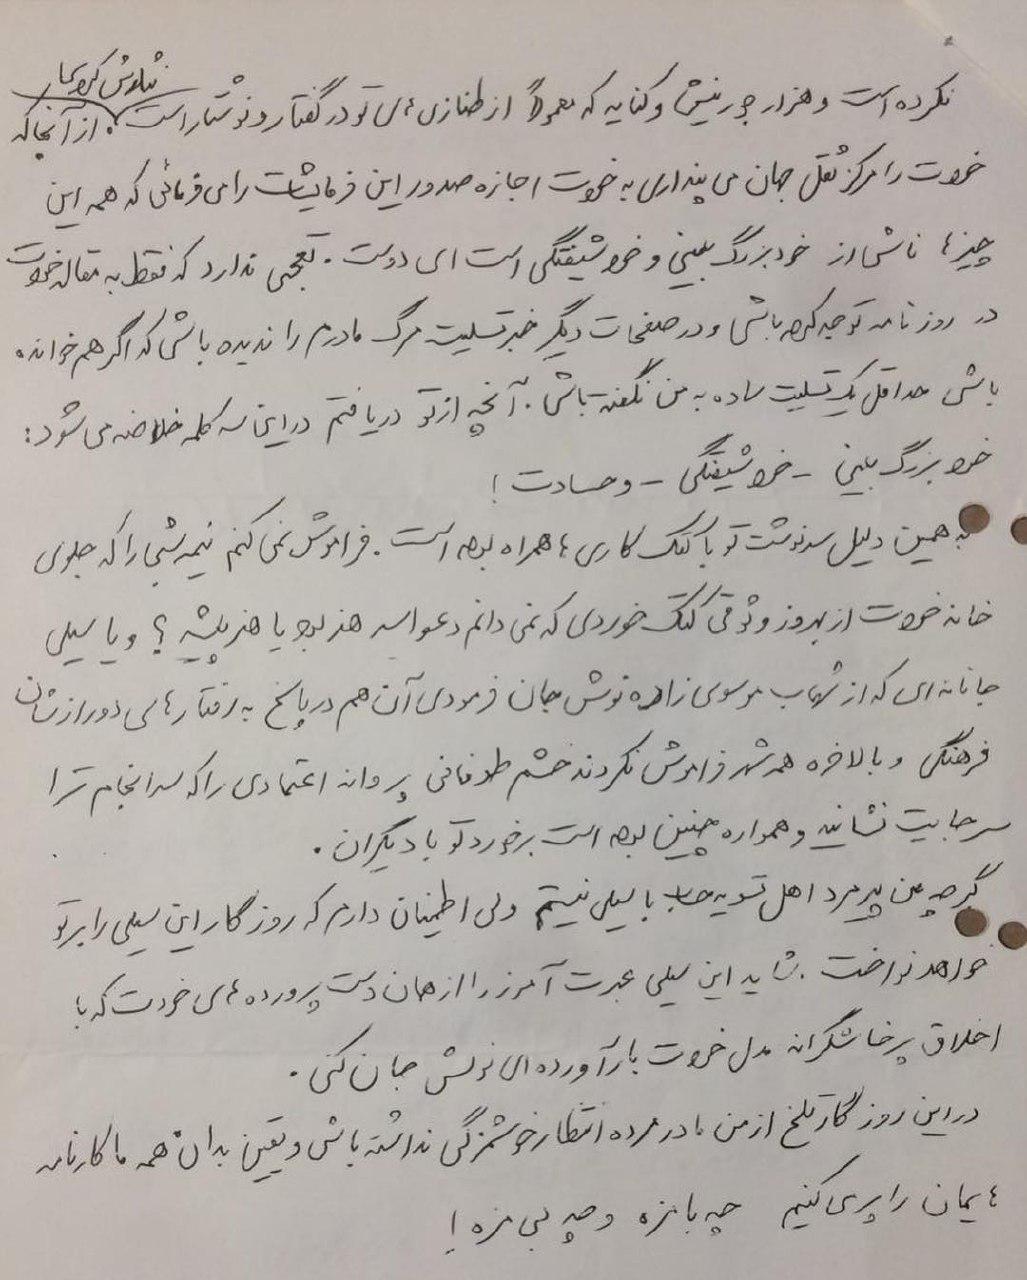 نثارش کرده‌ای
نکرده است و هزار جور نیش و کنایه که معمولاً از طنازی‌های تو در گفتار و نوشتار است. از آنجا که
خودت را مرکز ثقل جهان می‌پنداری به خودت اجازه صدور این فرمایشات را می‌فرمائی که همه این
چیزها ناشی از خود بزرگ بینی و خودشیفتگی است ای دوست. تعجبی ندارد که فقط به مقاله خودت
در روزنامه توجه کرده باشی و در صفحات دیگر خبر تسلیت مرگ مادرم را ندیده باشی که اگر هم خوانده
باشی حداقل یک تسلیت ساده به من نگفته باشی. آنچه از تو دریافتم در این سه کلمه خلاصه می‌شود:
خود بزرگ بینی - خودشیفتگی - و حسادت!
به همین دلیل سرنوشت تو با کتک کاری‌ها همراه بوده است. فراموش نمی‌کنم نیمه شبی را که جلوی
خانه خودت از بهروز وثوقی کتک خوردی که نمی‌دانم دعوا سر هنر بود یا هنرپیشه؟ و یا سیلی
جانانه‌ای که از شهاب موسوی زاده نوش جان فرمودی آن هم در پاسخ به رفتارهای دور از شان
فرهنگی و بالاخره همه شهر فراموش نکردند خشم طوفانی پروانه اعتمادی را که سرانجام ترا
سر جایت نشانید و همواره چنین بوده است برخورد تو با دیگران.
گرچه من پیرمرد اهل تسویه حساب با سیلی نیستم ولی اطمینان دارم که روزگار این سیلی را بر تو
خواهد نواخت. شاید این سیلی عبرت آموز را از همان دست پرورده‌های خودت که با
اخلاق پرخاشگرانه مدل خودت بار آورده‌ای نوش جان کنی.
در این روزگار تلخ از من مادر مرده انتظار خوشمزگی نداشته باش و یقین بدان همه ما کارنامه
هایمان را پر می‌کنیم چه با مزه و چه بی مزه!